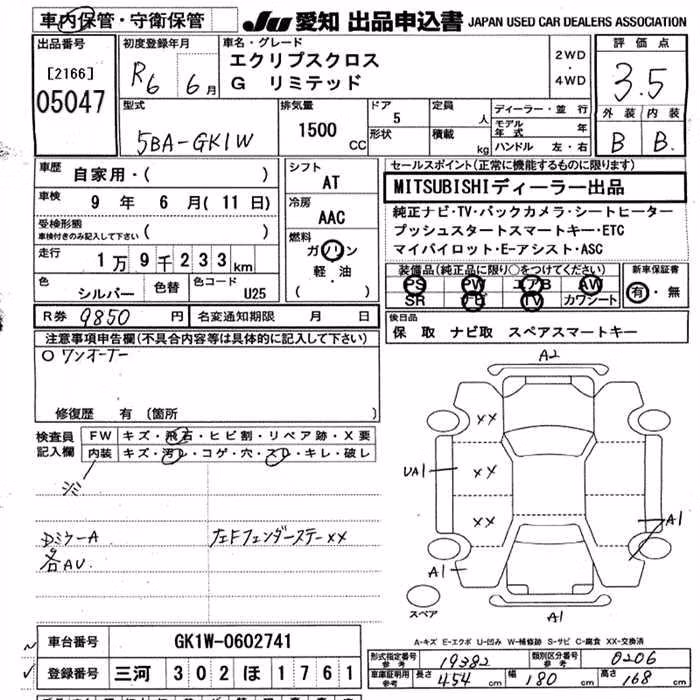 車内保管・守衛保管
JU 愛知 出品申込書 JAPAN USED CAR DEALERS ASSOCIATION
出品番号
[2166]
05047
初度登録年月
R6 6月
車名・グレード
エクリプスクロス
G リミテッド
2WD
・
4WD
評価点
3.5
外装 内装
B B.
型式
5BA-GK1W
排気量
1500 CC
ドア
5
形状
定員
人
積載
kg
ディーラー・並行
モデル年式 年
ハンドル 左・右
車歴
自家用・( )
車検
9 年 6 月( 11 日)
受検形態
車検付きのみ記入して下さい ( )
走行
1万9千233km
色
シルバー
色替
色コード
U25
シフト
AT
冷房
AAC
燃料
ガソリン
軽・油
( )
セールスポイント(正常に機能するものに限ります)
MITSUBISHIディーラー出品
純正ナビ・TV・バックカメラ・シートヒーター
プッシュスタートスマートキー・ETC
マイパイロット・E-アシスト・ASC
装備品(純正品に限り○をつけてください)
PS PW エアB AW
SR ナビ TV カワシート
新車保証書
有・無
R券 9850 円
名変通知期限 月 日
後日品
保 取 ナビ取 スペアスマートキー
注意事項申告欄(不具合内容等は具体的に記入して下さい)
○ワンオーナー
修復歴 有 (箇所
検査員記入欄
FW キズ・飛石・ヒビ割・リペア跡・X要
内装 キズ・汚レ・コゲ・穴・スレ・キレ・破レ
※
Dミラー A
各AU.
左Fフェンダーステー XX
A2
XX
UA1
XX
XX
A1
A1
A1
スペア
A-キズ E-エクボ U-凹み W-補修跡 S-サビ C-腐食 XX-交換済
車台番号 GK1W-0602741
登録番号 三河 302 ほ 1761
形式指定番号 参考 19382
類別区分番号 参考 0206
車庫証明用 参考 長さ 454 cm 幅 180 cm 高さ 168 cm